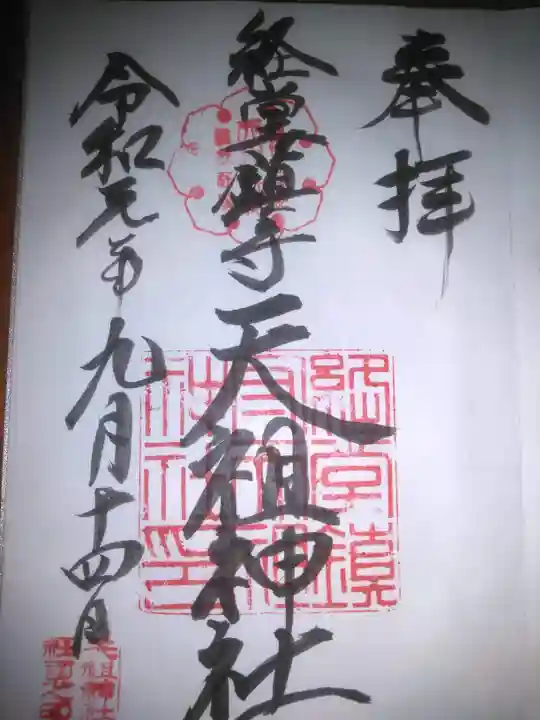 奉拝
経堂鎮守天祖神社
令和元年九月十四日